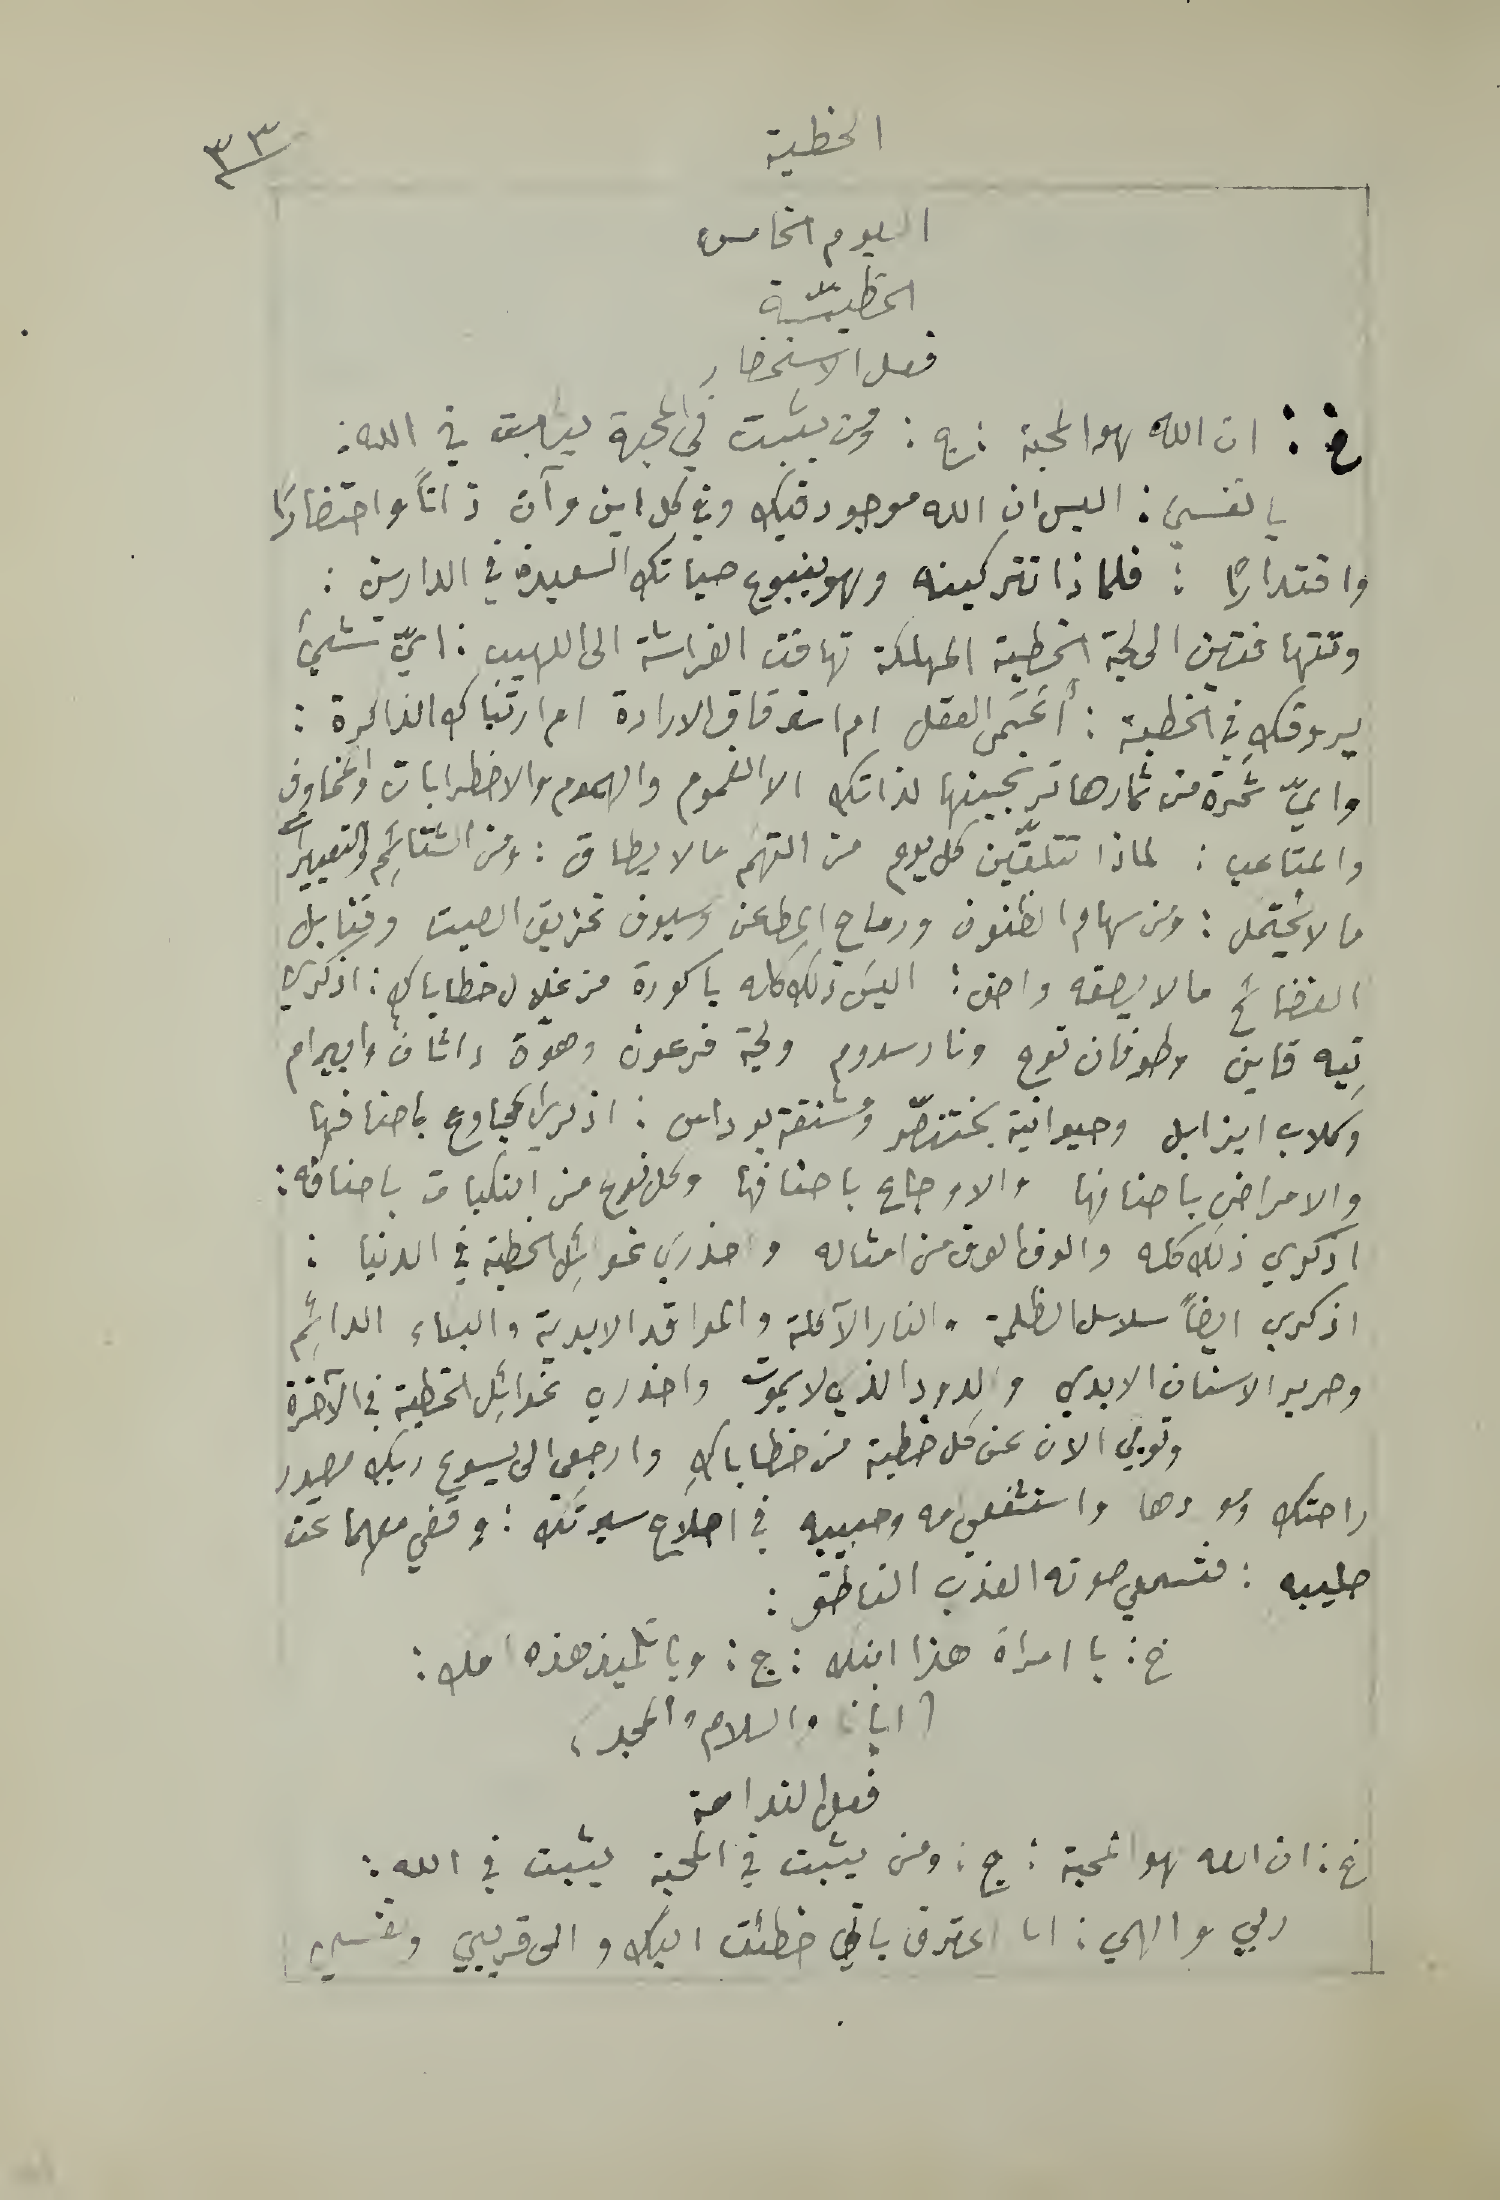 الخطية
٣٣
اليوم الخامس
الخطيّة
فعل الاستحضار
خ : ان الله هو المحبة : ج : ومن يثبت في المحبة يثبت في الله :
يا نفسي : اليس ان الله موجود فيك وفي كل اين وآن ذاتاً واحتضارًا
واقتدارًا : فلماذا تتركينه وهو ينبوع حياتك السعيدة في الدارين :
وتتهافتين الى لجة الخطية المهلكة تهافت الفراشة الى اللهيب : ايّ شيئ
يروقكِ في الخطية : أعَمَى العقل ام استرقاق الارادة ام ارتباك الذاكرة :
وايّ ثمرة من ثمارها تجنينها لذاتك الا الغموم والهموم والاضطرابات والمخاوف
والمتاعب : لماذا تتلقّين كل يوم من التهم ما لا يطاق : ومن الشتائم والتعييرات
ما لا يحتمل : ومن سهام الظنون ورماح المطاعن وسيوف تمزيق الصيت وقنابل
الفضائح ما لا يصفه واصف : اليسَ ذلك كله باكورة من غلال خطاياكِ : اذكري
تِيه قاين وطوفان نوح ونار سدوم ولجة فرعون وهوّة داثان وابيرام
وكلاب ايزابل وحيوانية بختنصّر ومشنقة يوداس : اذكري المجاوع باصنافها
والامراض باصنافها والاوجاع باصنافها وكل نوع من النكبات باصنافه :
اذكري ذلك كله والوف الوف من امثاله واحذري غوائل الخطية في الدنيا :
اذكري ايضاً سلاسل الظلمة والنار الآكلة والمواقد الابدية والبكاء الدائم
وصرير الاسنان الابدي والدود الذي لا يموت واحذري غوائل الخطية في الآخرة
وتوبي الان عن كل خطية من خطاياكِ وارجعي الى يسوع ربك مصدر
راحتك وموردها واستشفعي امه وحبيبه في اصلاح سيرتك : وقفي معهما تحت
صليبه : فتسمعي صوته العذب الناطق :
خ : يا امراة هذا ابنك : ج : ويا تلميذ هذه امك :
( ابانا والسلام والمجد )
فعل الندامة
خ : ان الله هو المحبة : ج : ومن يثبت في المحبة يثبت في الله :
ربي والهي : انا اعترف باني خطئت اليك والى قريبي ونفسي